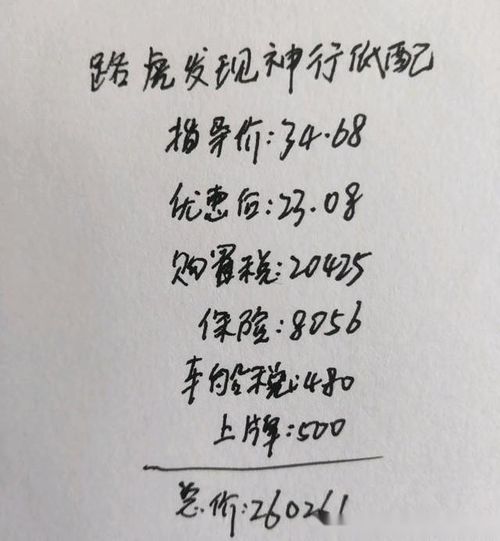 路虎发现神行低配
指导价:34.68
优惠后:23.08
购置税:20425
保险:8056
车船税:480
上牌:500
总价:260261